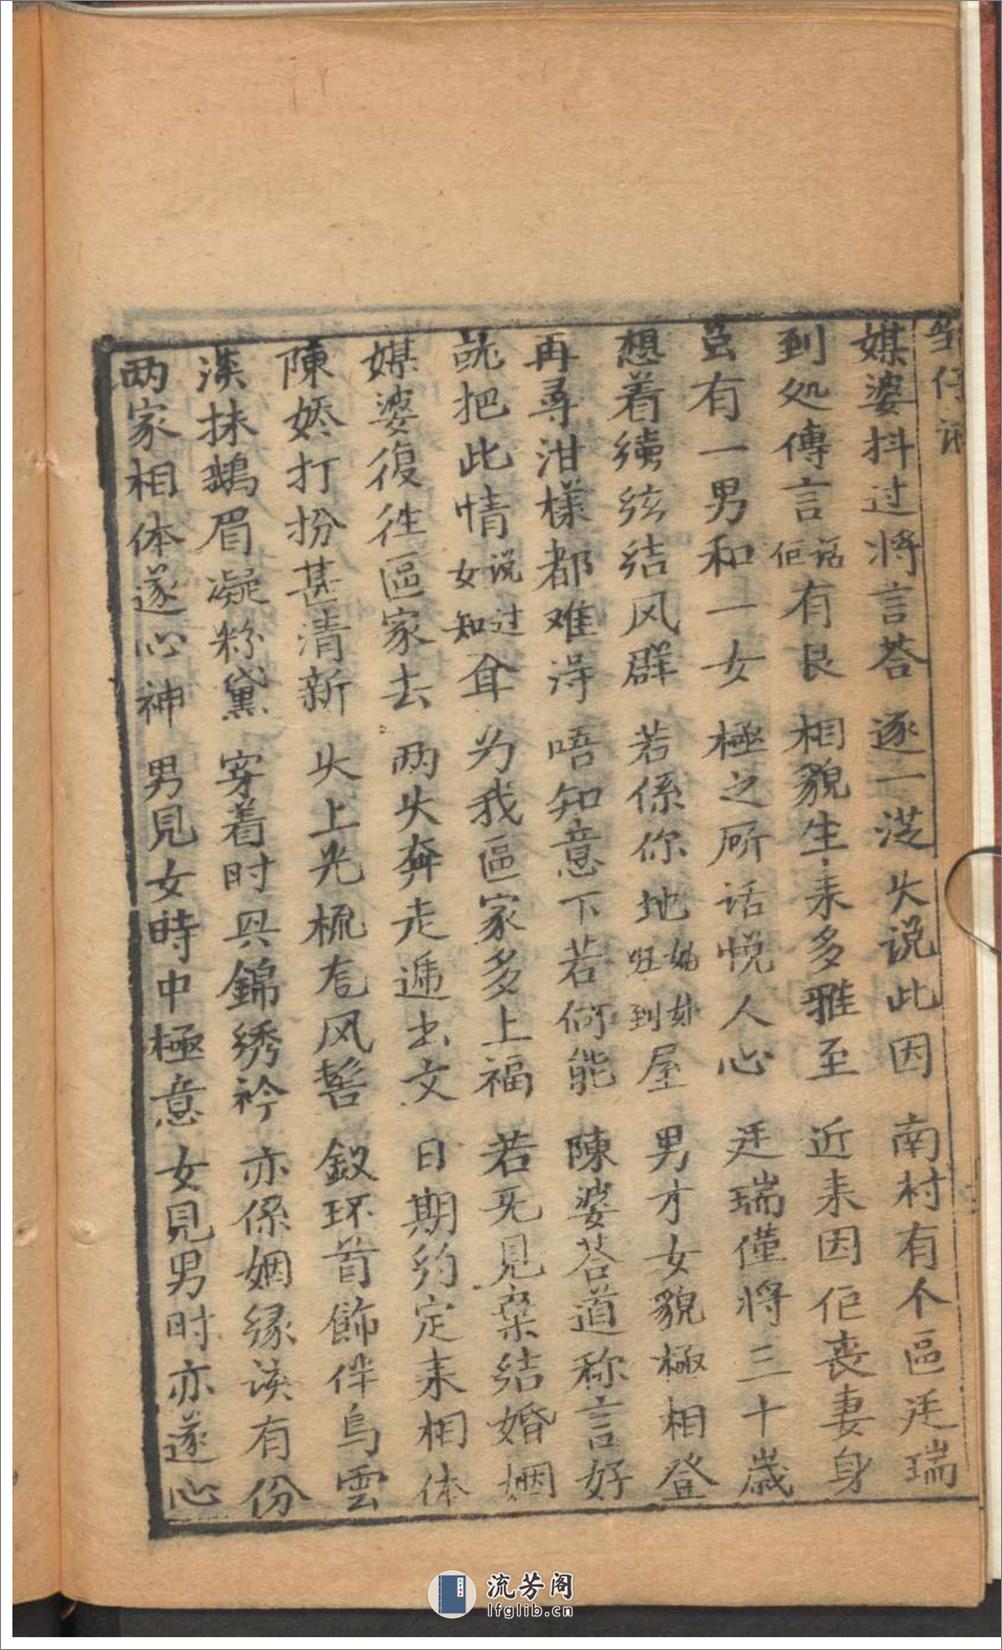 媒婆抖过将言荅 逐一从头说此因 南村有个區廷瑞
到処傳言话佢有良 相貌生来多雅至 近来因佢丧妻身
有一男和一女 極之厮话悦人心 廷瑞僅将三十歲
想着续弦结风群 若係你地女旺到屋 男才女貌極相登
再尋泔樣都难淂 唔知意下若何能 陳婆荅道称言好
就把此情说过女知耷 为我區家多上福 若死見桒结婚姻
媒婆復徃區家去 两头奔走递出文 日期约定来相体
陳娇打扮甚清新 头上光梳危风髻 釵环首飾伴烏雲
淡抹鵝眉凝粉黛 穿着时兴錦绣衿 亦係姻缘该有份
两家相体遂心神 男見女時中極意 女見男时亦遂心
流芳阁
lfglib.cn